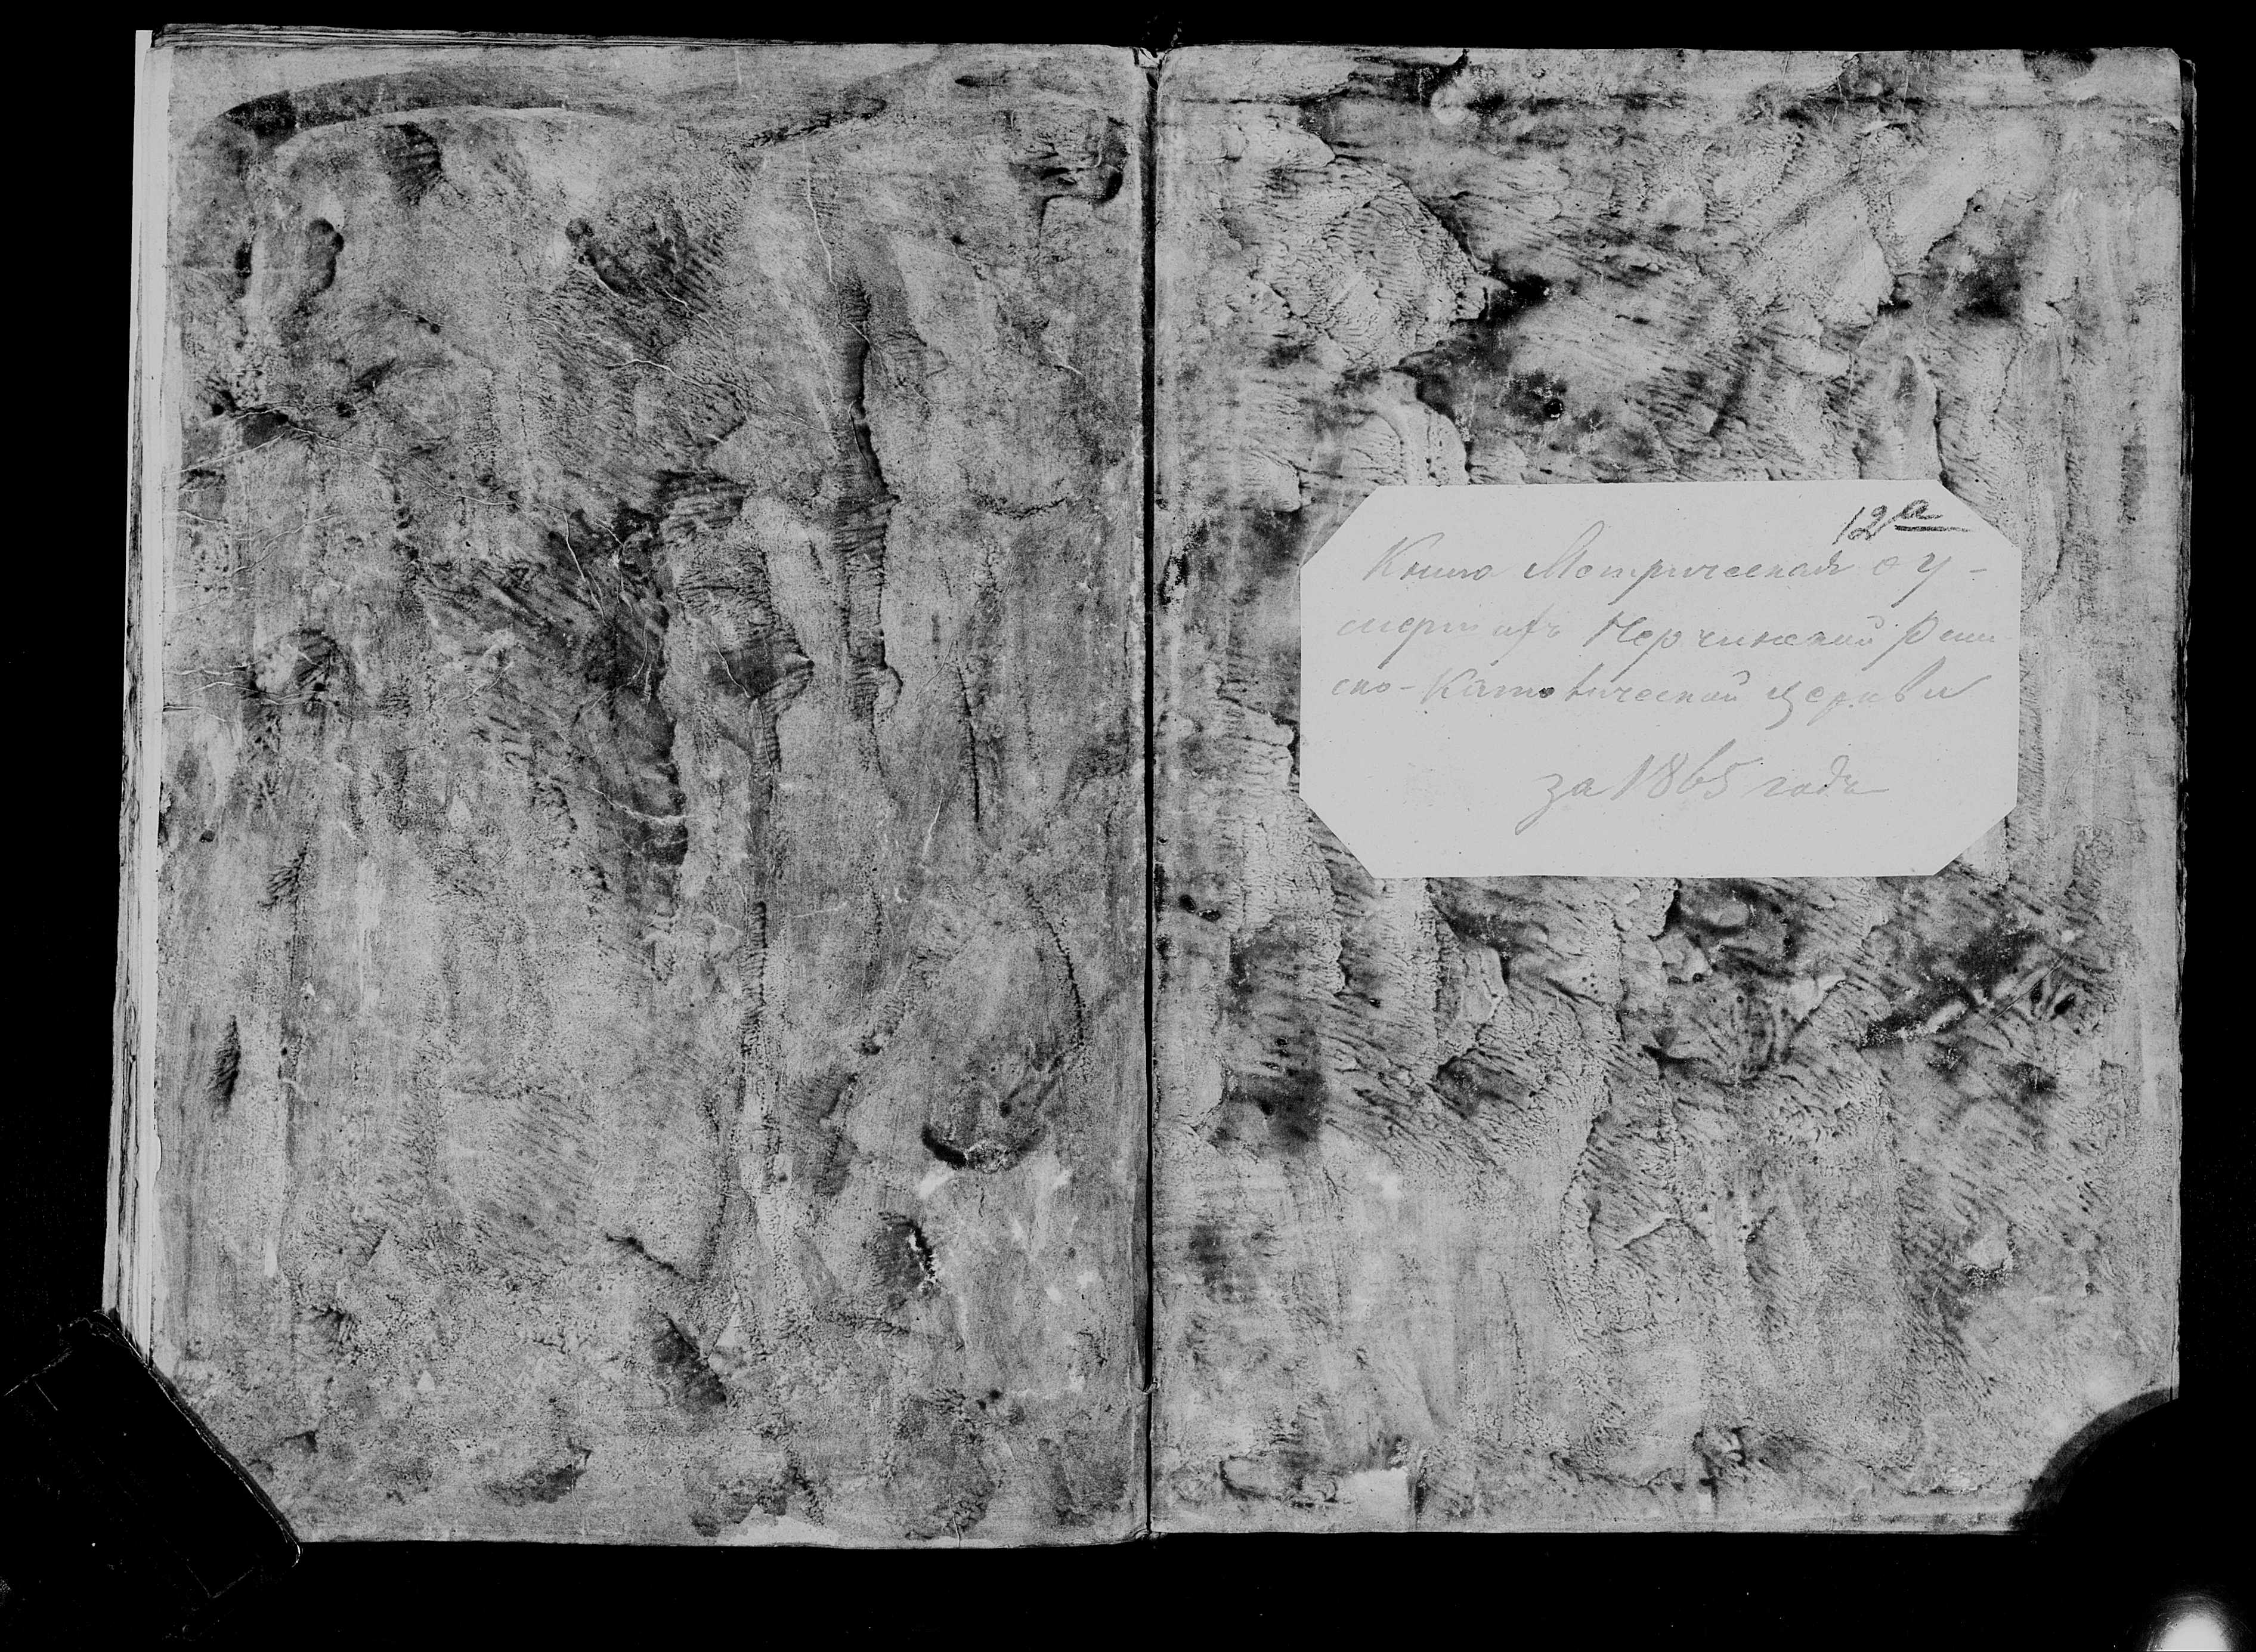 12а
Книга Метрическая о у-
мершихъ Нерчинской Рим-
ско-Католической церкви
за 1865 годъ